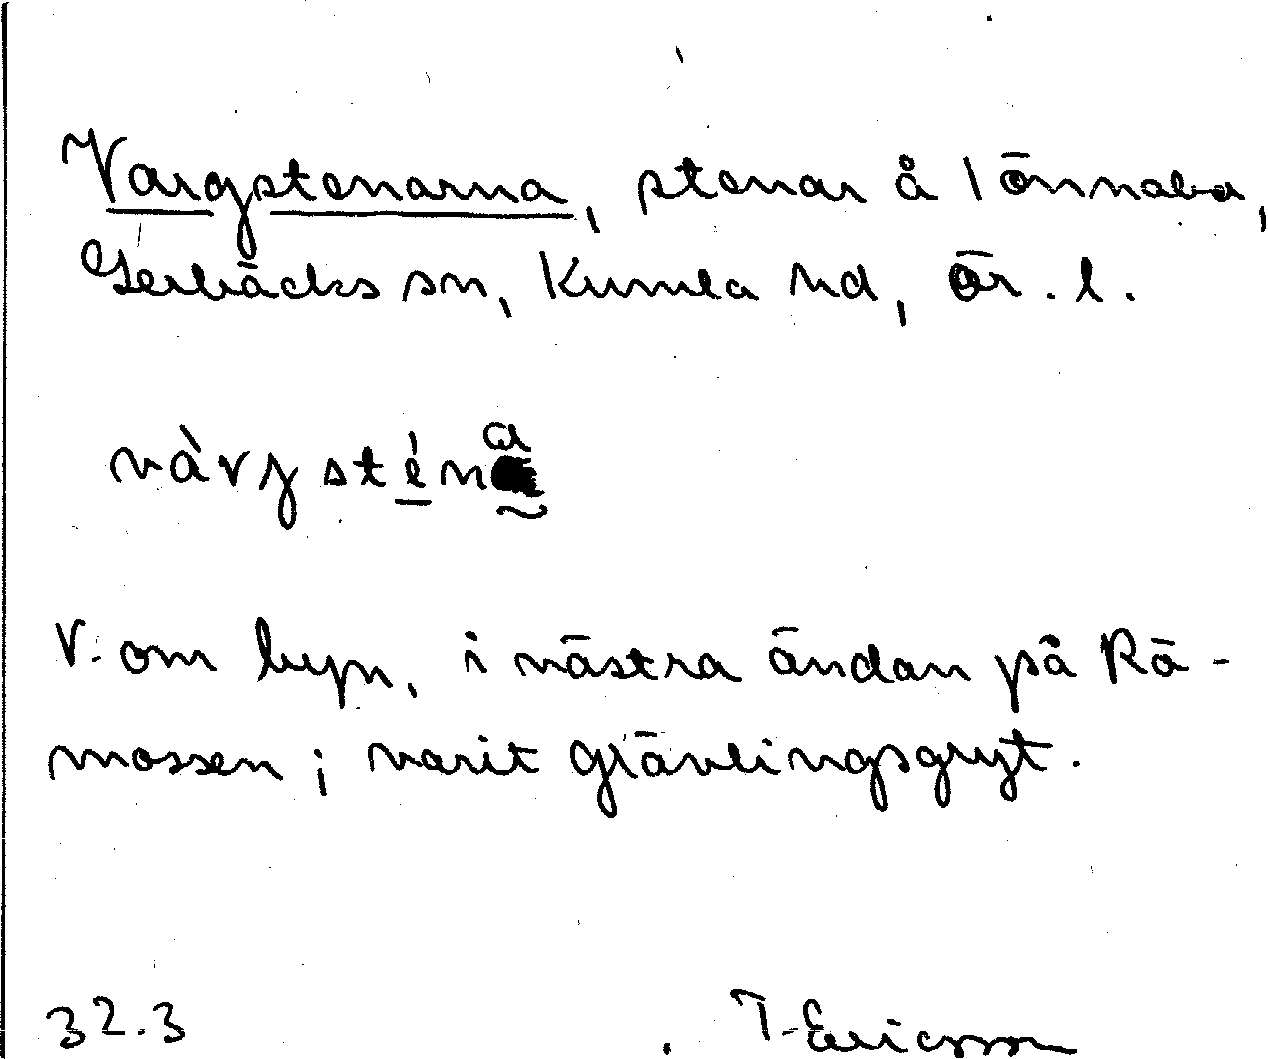 Vargstenarna, stenar å Lönnabo,
Lerbäcks sn, Kumla hd, Ör. l.
vàrgsténa
V. om byn, i västra ändan på Rå-
mossen; varit grävlingsgryt.
32.3 T. Ericsson